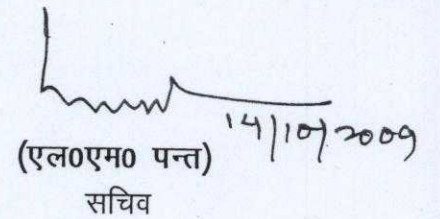 14/10/2009
(एल0एम0 पन्त)
सचिव